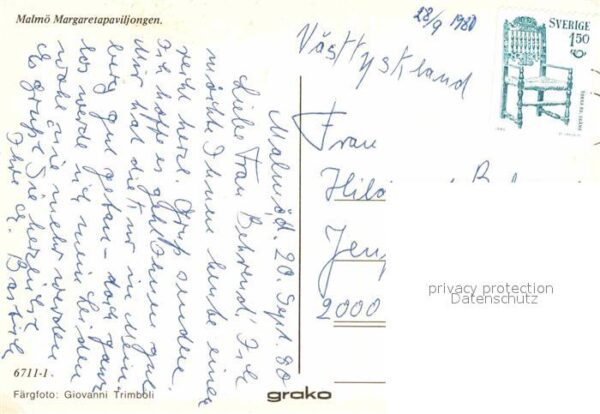 Malmö Margaretapaviljongen.
28/9 1980
SVERIGE
1.50
Västtyskland
Frau
2000
privacy protection
Datenschutz
Malmö d. 20. Sept. 80
Liebe Frau Behrend! Ich
möchte Ihnen heute einen
recht herzl. Gruß senden.
Ich hoffe es geht Ihnen gut.
Mir hat die
gut getan – doch ganz
los werde ich mein Leiden
wohl nie mehr werden.
Es grüßt Sie herzlichst
Ihre
6711-1.
Färgfoto: Giovanni Trimboli
grako